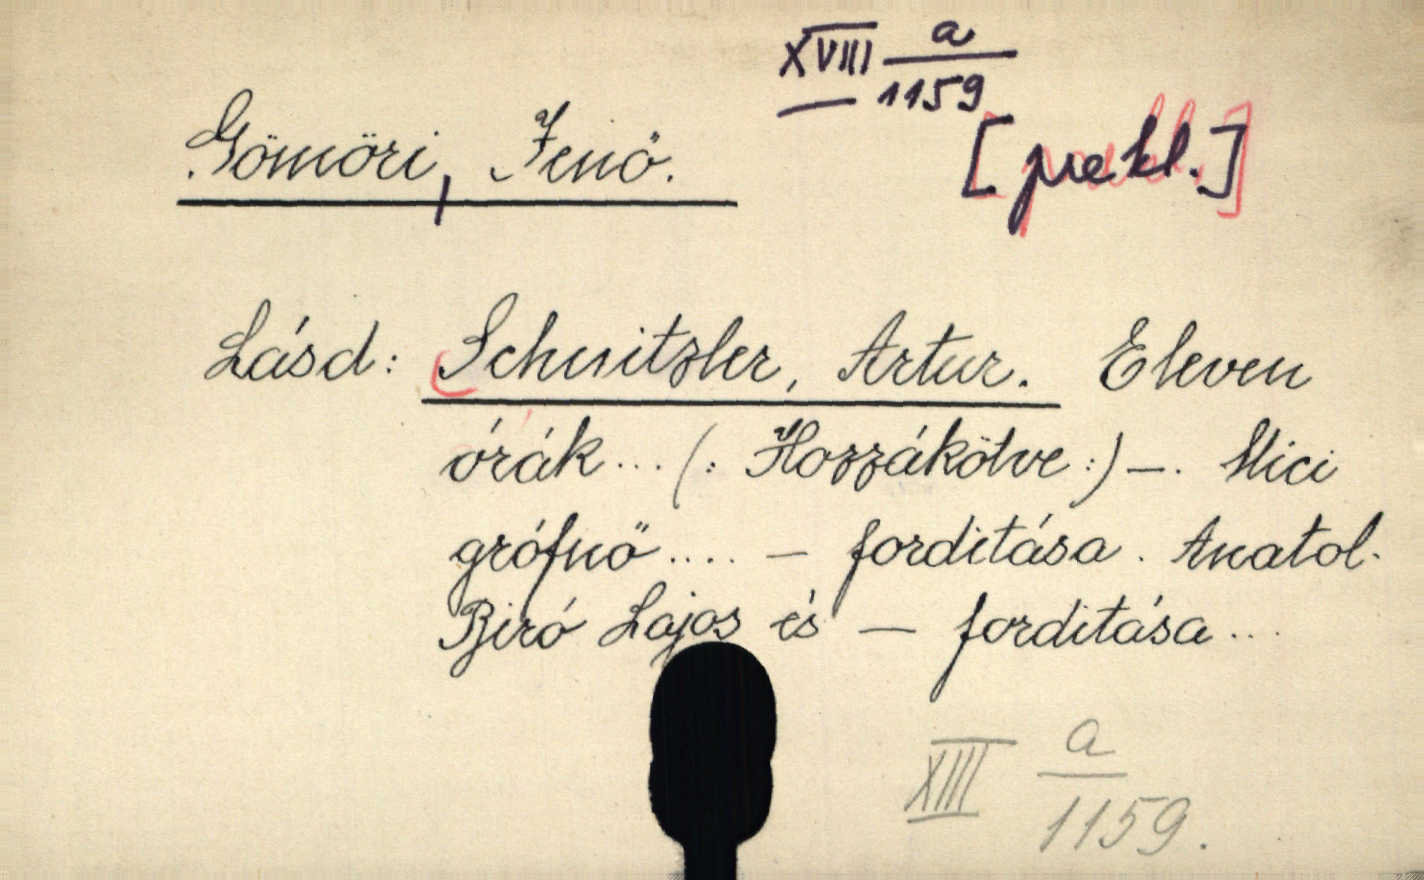 XVIII a
1159
Gömöri, Jenő.
[prekl.]
Lásd: Schnitzler, Artur. Eleven
órák... (: Hozzákötve :) —. Mici
grófnő.... — forditása. Anatol.
Biró Lajos és — forditása...
XIII a
1159.